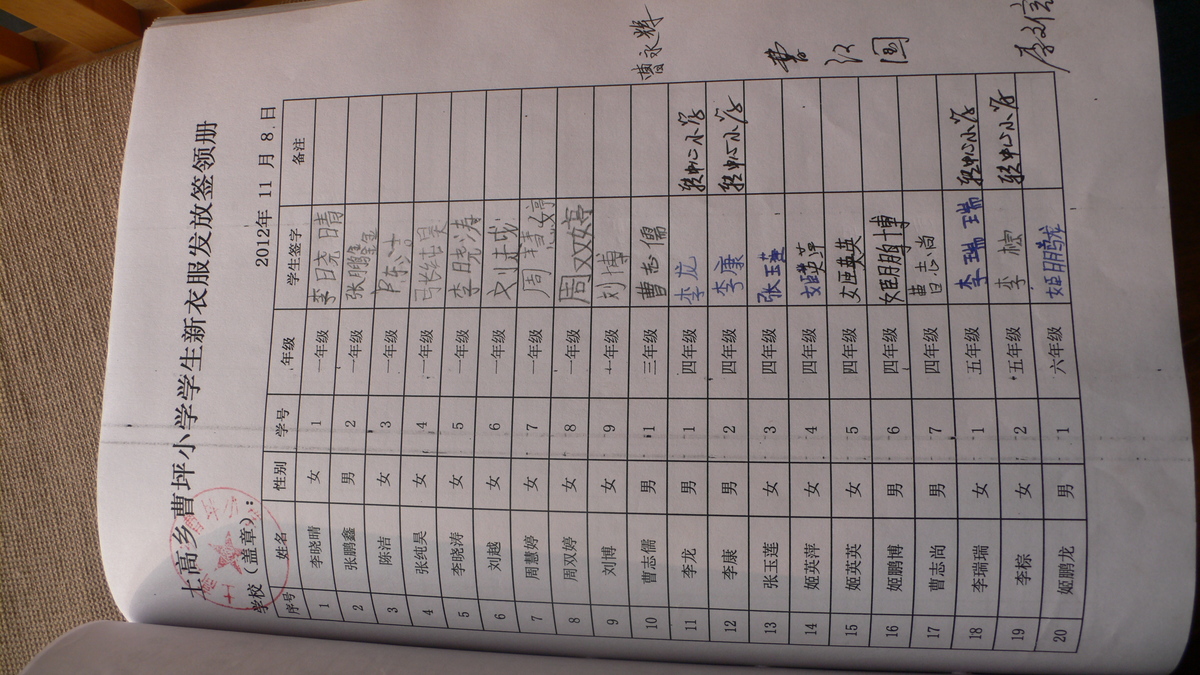 土高乡曹坪小学学生新衣服发放签领册
学校（盖章）： 2012年 11 月 8 日
序号 姓名 性别 学号 年级 学生签字 备注
1 李晓晴 女 1 一年级 李晓晴
2 张鹏鑫 男 2 一年级 张鹏鑫
3 陈洁 女 3 一年级 陈洁
4 张纯昊 女 4 一年级 张纯昊
5 李晓涛 女 5 一年级 李晓涛
6 刘越 女 6 一年级
7 周慧婷 女 7 一年级 周慧婷
8 周双婷 女 8 一年级 周双婷
9 刘博 女 9 一年级 刘博
10 曹志儒 男 1 三年级 曹志儒
11 李龙 男 1 四年级 李龙 转中心小学
12 李康 男 2 四年级 李康 转中心小学
13 张玉莲 女 3 四年级 张玉莲
14 姬英萍 女 4 四年级 姬英萍
15 姬英英 女 5 四年级 姬英英
16 姬鹏博 男 6 四年级 姬鹏博
17 曹志尚 男 7 四年级 曹志尚
18 李瑞瑞 女 1 五年级 李瑞瑞 转中心小学
19 李棕 女 2 五年级 李棕 转中心小学
20 姬鹏龙 男 1 六年级 姬鹏龙
曹永辉
曹江国